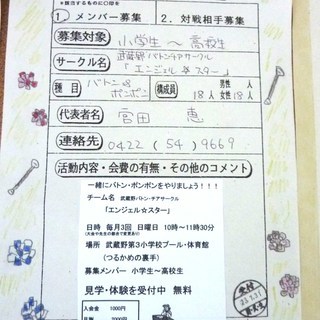 ※該当するものに○印を
1. メンバー募集　2. 対戦相手募集
募集対象　小学生～高校生
サークル名　武蔵野バトンチアサークル
「エンジェル☆スター」
種目　バトン&ポンポン　構成員　男性 人
18人 女性18人
代表者名　宮田 恵
連絡先　0422（54）9669
活動内容・会費の有無・その他のコメント
一緒にバトン・ポンポンをやりましょう！！！
チーム名　武蔵野バトン・チアサークル
「エンジェル☆スター」
日時　毎月3回　日曜日　10時～11時30分
場所　武蔵野第3小学校プール・体育館
（つるかめの裏手）
募集メンバー　小学生～高校生
見学・体験を受付中　無料
入会金　1000円